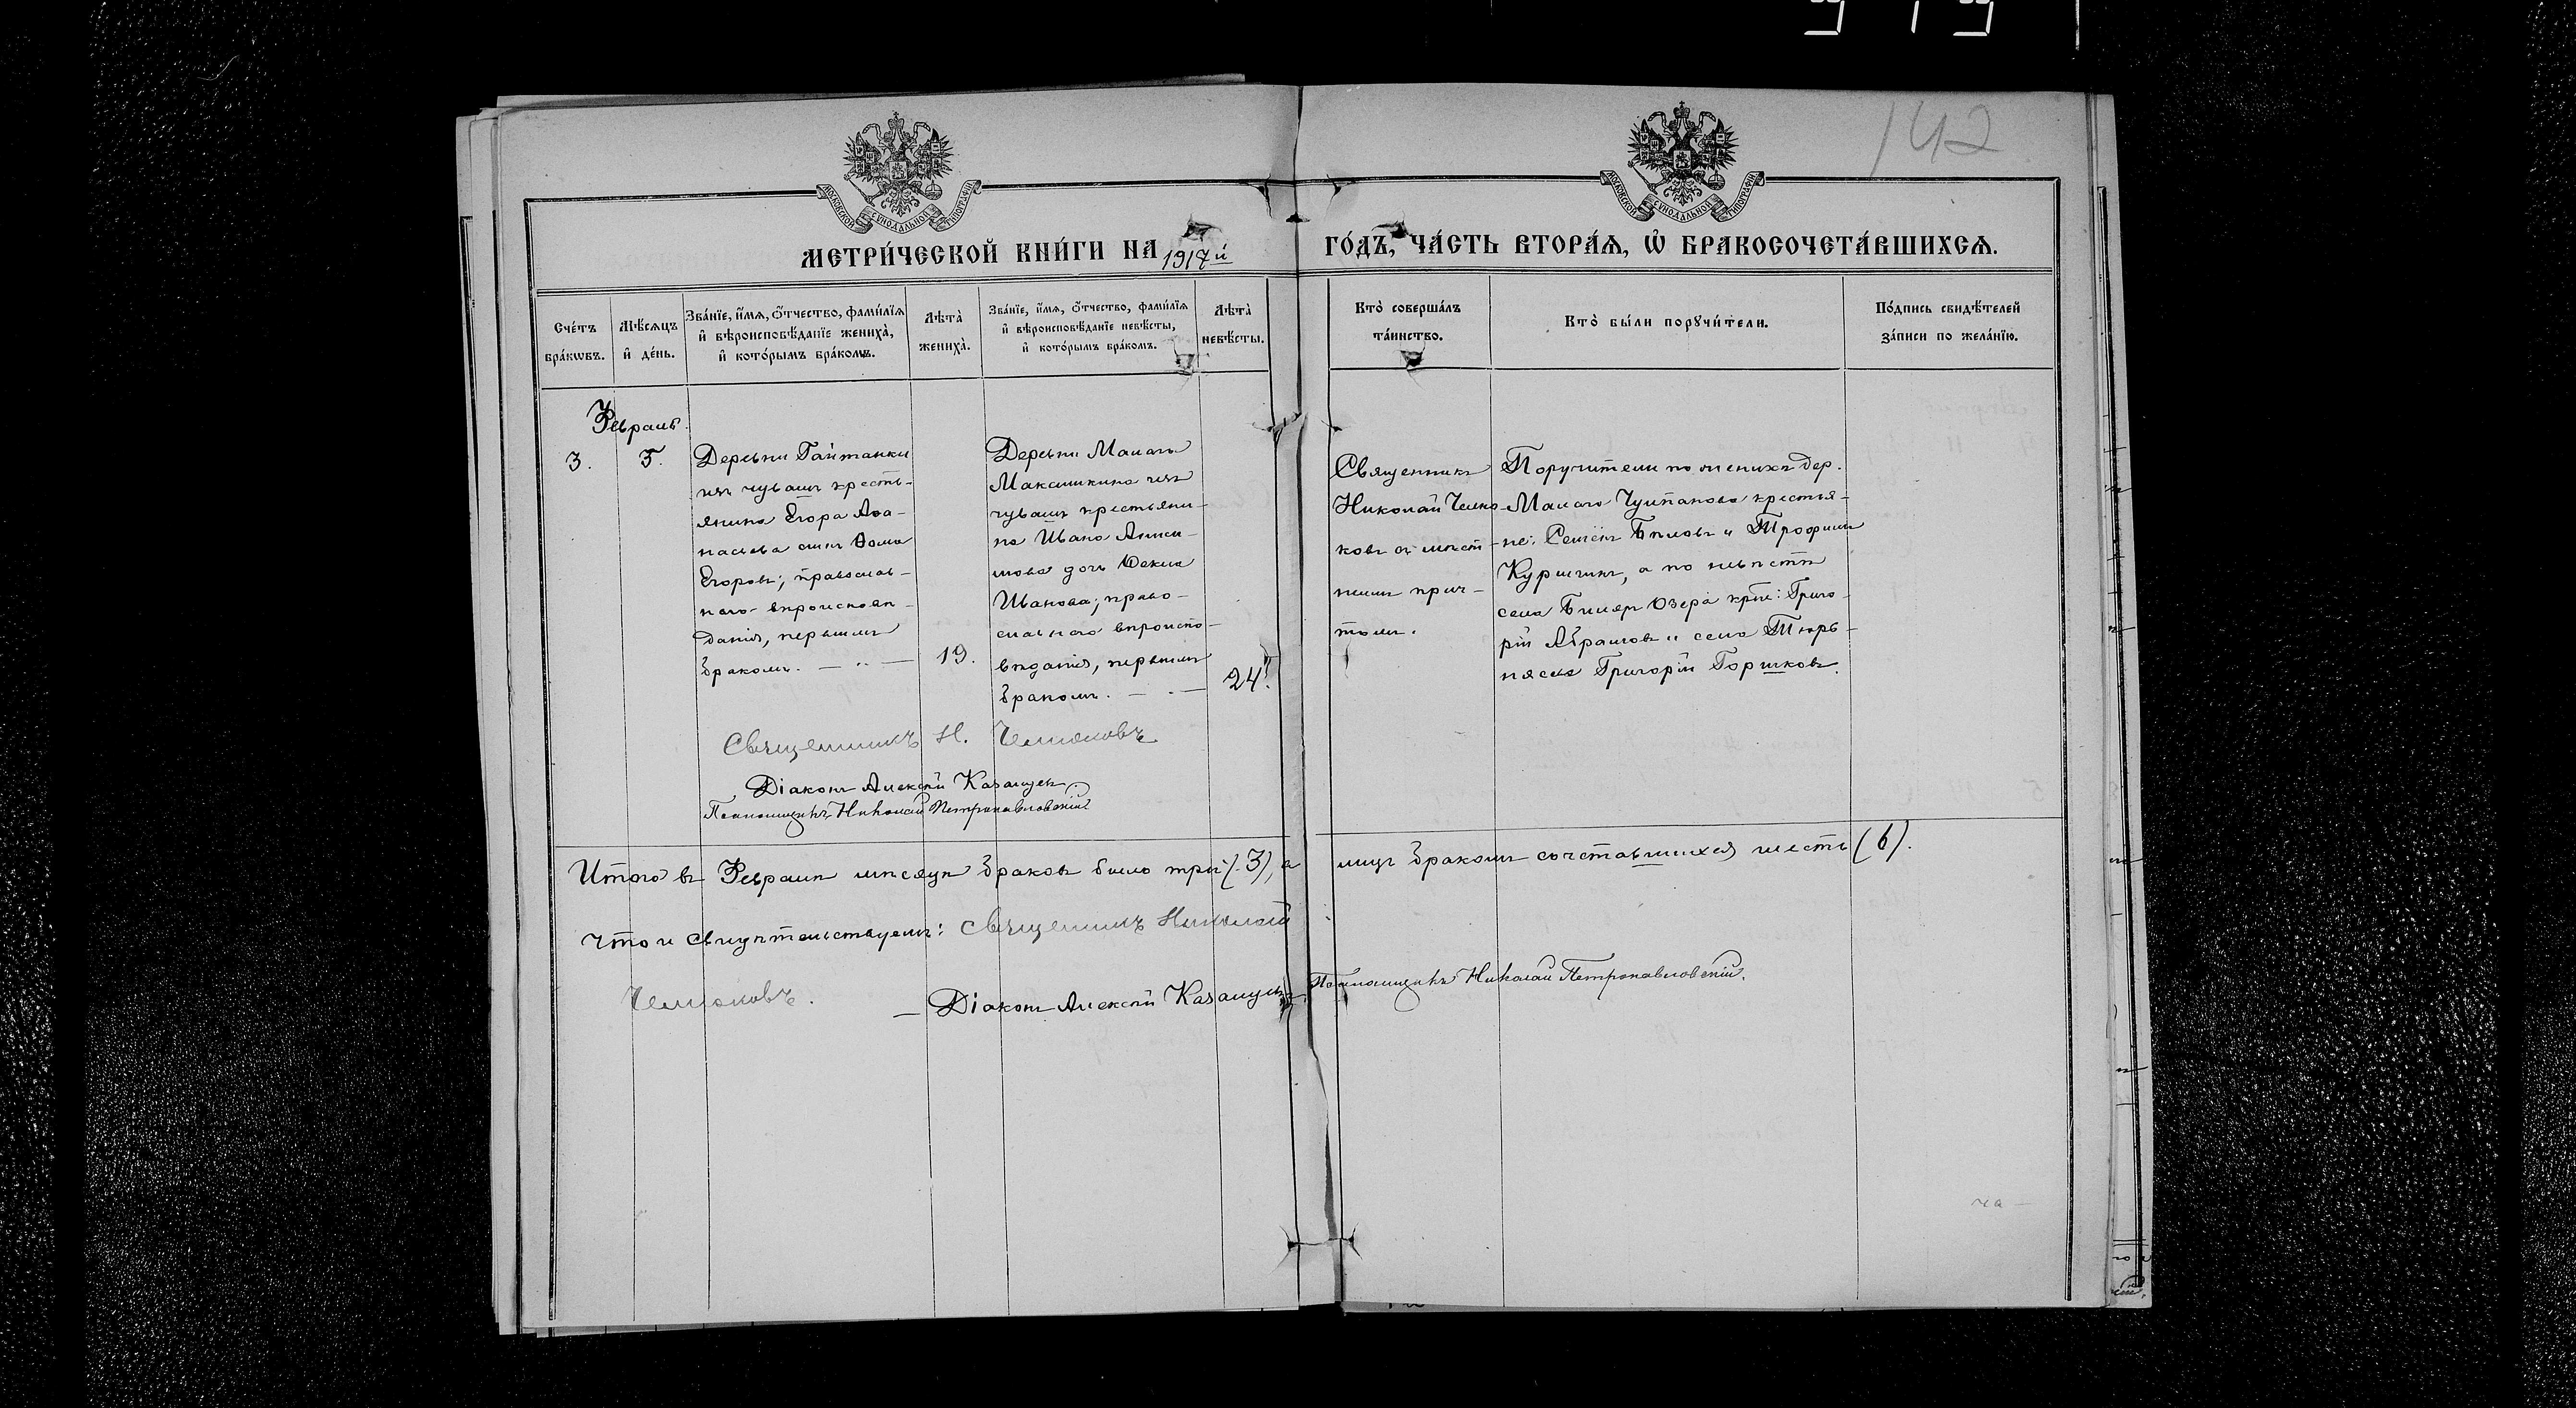 142
МОСКОВСКОЙ СѴНОДАЛЬНОЙ ТИПОГРАФІИ
МОСКОВСКОЙ СѴНОДАЛЬНОЙ ТИПОГРАФІИ
МЕТРИ́ЧЕСКОЙ КНИ́ГИ НА 1917й ГО́ДЪ, ЧА́СТЬ ВТОРА́Ѧ, Ѽ БРАКОСОЧЕТА́ВШИХСѦ.
Сче́тъ бра́кѡвъ.
Мѣ́сѧцъ и҆ де́нь.
Зва́нїе, и҆́мѧ, ѻ҆́тчество, фами́лїѧ
и҆ вѣроисповѣ́данїе жениха̀,
и҆ кото́рымъ бра́комъ.
Лѣта̀ жениха̀.
Зва́нїе, и҆́мѧ, ѻ҆́тчество, фами́лїѧ
и҆ вѣроисповѣ́данїе невѣ́сты,
и҆ кото́рымъ бра́комъ.
Лѣта̀ невѣ́сты.
Кто̀ соверша́лъ
та́инство.
Кто̀ бы́ли порꙋчи́тели.
По́дпись свидѣ́телей
за́писи по жела́нїю.
Февраль.
3.
5.
Деревни Гайтанки
изъ чувашъ кресть-
янина Егора Аѳа-
насьева сынъ Ѳома
Егоровъ; православ-
наго вѣроисповѣ-
данія, первымъ
бракомъ. — „ —
19.
Деревни Малаго
Максимкина изъ
чувашъ крестьяни-
на Ивана Аниси-
мова дочь Ѳекла
Иванова; право-
славнаго вѣроиспо-
вѣданія, первымъ
бракомъ. — . —
24.
Священникъ
Николай Челно-
ковъ съ мѣст-
нымъ прич-
томъ.
Поручители по женихѣ дер.
Малаго Чулпанова крестья-
не: Семенъ Бѣловъ и Трофимъ
Куршинъ, а по невѣстѣ
села Биляръ Озера крте: Григо-
рій Абрамовъ и села Тюрь-
нясева Григорій Горшковъ.
Священникъ Н. Челноковъ
Діаконъ Алексій Казанцевъ
Псаломщикъ Николай Петропавловскій
Итого въ Февралѣ мѣсяцѣ браковъ было три (3), а лицъ бракомъ сочетавшихся шесть (6).
Что и свидѣтельствуемъ: Священникъ Николай
Челноковъ. — Діаконъ Алексій Казанцевъ Псаломщикъ Николай Петропавловскій.